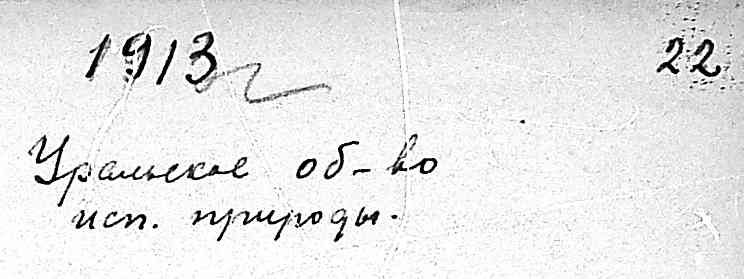 1913 г 22
Уральское об-во
исп. природы.